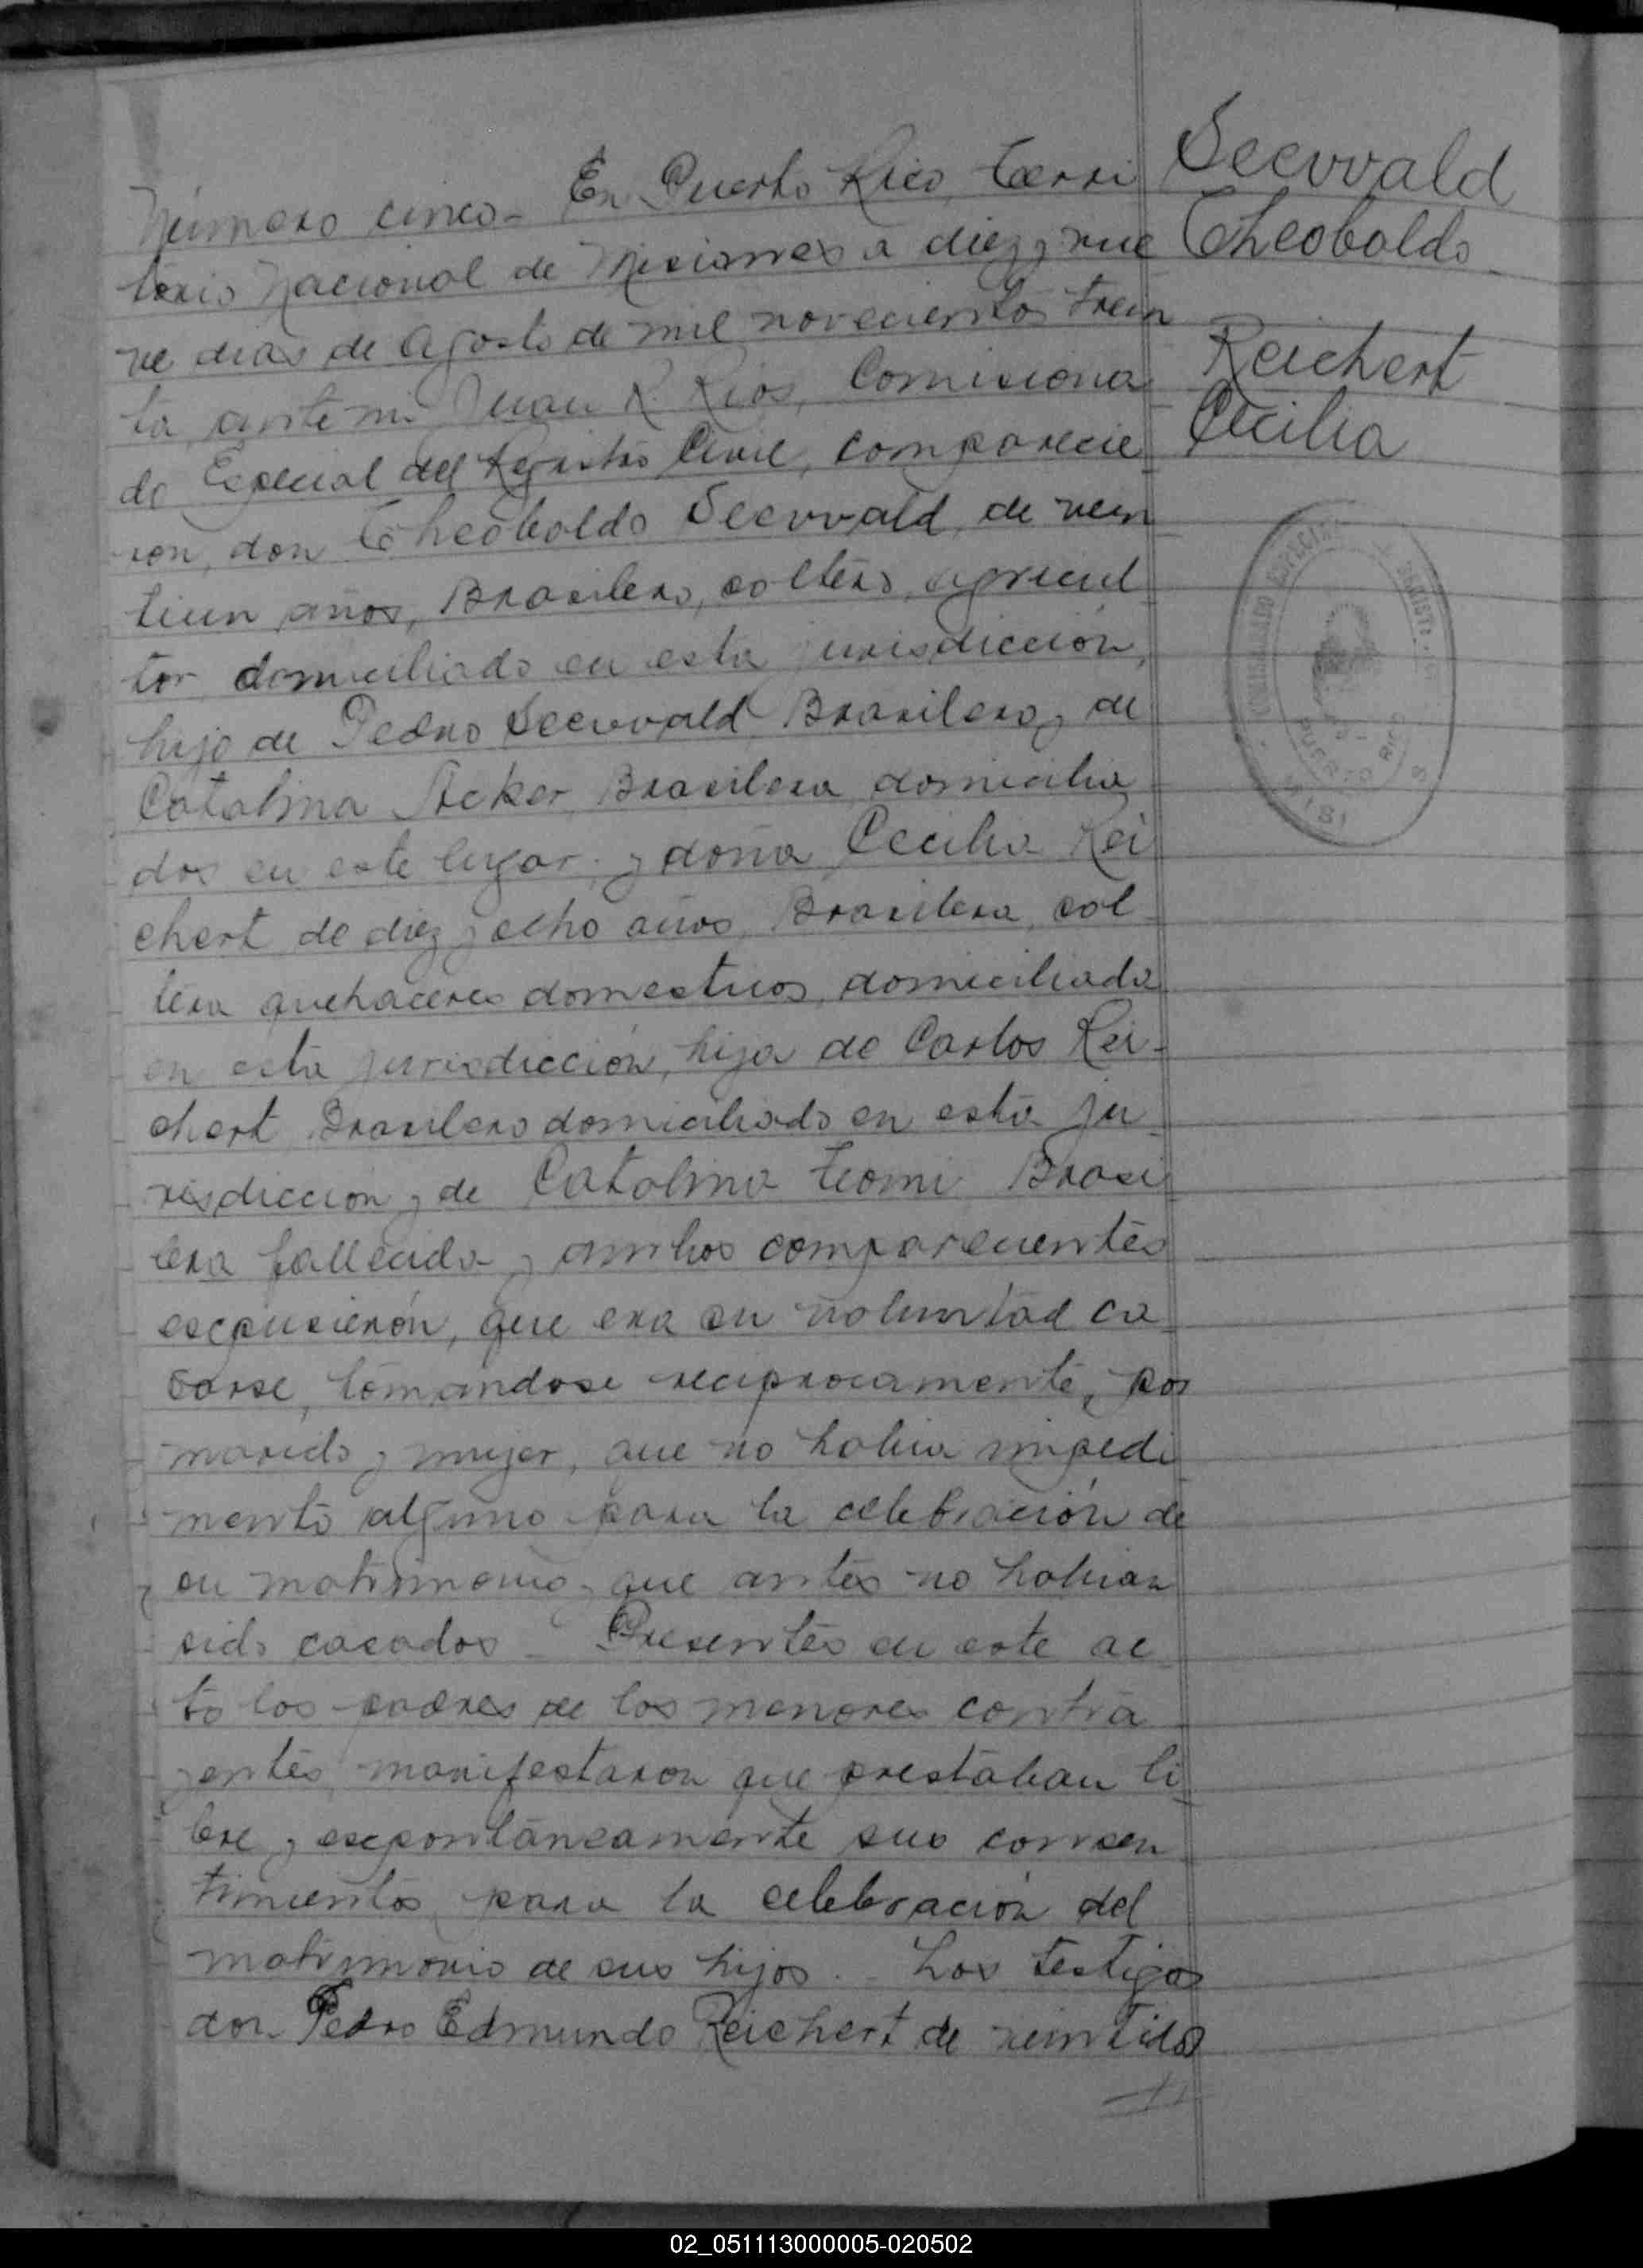 Número cinco - En Puerto Rico, Terri
torio Nacional de Misiones a diez y nue
ve dias de Agosto de mil novecientos trein
ta, ante mi Juan R. Rios, Comisiona
do Especial del Registro Civil, comparecie
ron, don Theobaldo Seewald, de vein
tiun años, Brasilero, soltero, agricul
tor domiciliado en esta jurisdicción,
hijo de Pedro Seewald Brasilero y de
Catalina Acker, Brasilera domicilia
dos en este lugar; y doña Cecilia Rei
chert de diez y ocho años, Brasilera, sol
tera quehaceres domesticos, domiciliada
en esta jurisdicción, hija de Carlos Rei-
chert Brasilero domiciliado en esta ju
risdiccion y de Catalina Brasi
lera fallecida y ambos comparecientes
expusierón, que era su voluntad ca
sarse, tomandose reciprocamente, por
marido y mujer, que no habia impedi
mento alguno para la celebración de
su matrimonio y que antes no habian
sido casados - Presentes en este ac
to los padres de los menores contra
yentes, manifestaron que prestaban li
bre y expontáneamente sus consen
timientos para la celebración del
matrimonio de sus hijos. - Los testigos
don Pedro Edmundo Reichert de veintido
Seewald
Theobaldo
Reichert
Cecilia
COMISARIADO ESPECIAL
REGISTRO
PUERTO RICO
02_051113000005-020502